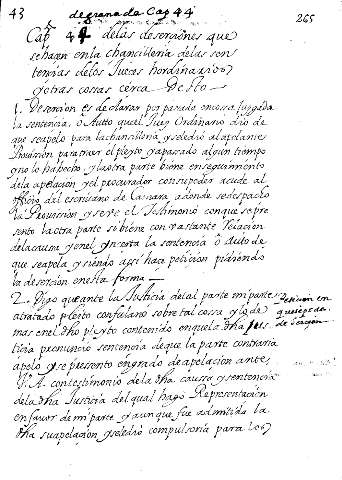 43 de granada Cap 44 265
Cap 44 delas deserçiones que
se haçen en la chançilleria delas sen
tençias delos Jueces hordinarios
y otras cosas cerca desto
1. Deserçion es declarar por pasado en cossa Juzgada
la sentençia, o Auto que el Juez Ordinario dio de
que se apelo para la chançilleria, y se le dio al apelante
Provission para traer el pleyto y a pasado algun tiempo
y no lo ha hecho, y la otra parte biene en seguimiento
dela apelaçion y el procurador con su poder acude al
offiçio del escrivano de Camara adonde se despacho
la Provission y se ve el Testimonio con que se pre
sento la otra parte si biene con vastante Relaçion
dela caussa y en el ynserta la sentençia o Auto de
que se apela y siendo assi haçe petiçion pidiendo
la deserçion en esta forma
2. Digo que ante la Justicia de tal parte mi parte
a tratado pleito con fulano sobre tal cossa y lo de
mas en el dho pleyto contenido en que la dha Jus
tiçia pronunçio sentençia de que la parte contraria
apelo y se presento en grado de apelaçion ante
V. A. con testimonio dela dha caussa y sentençia
dela dha Justiçia del qual hago Representaçion
en favor de mi parte y aunque fue admitida la
dha su apelaçion y se le dio compulsoria para los
Petiçion en
que se pide
deserçion